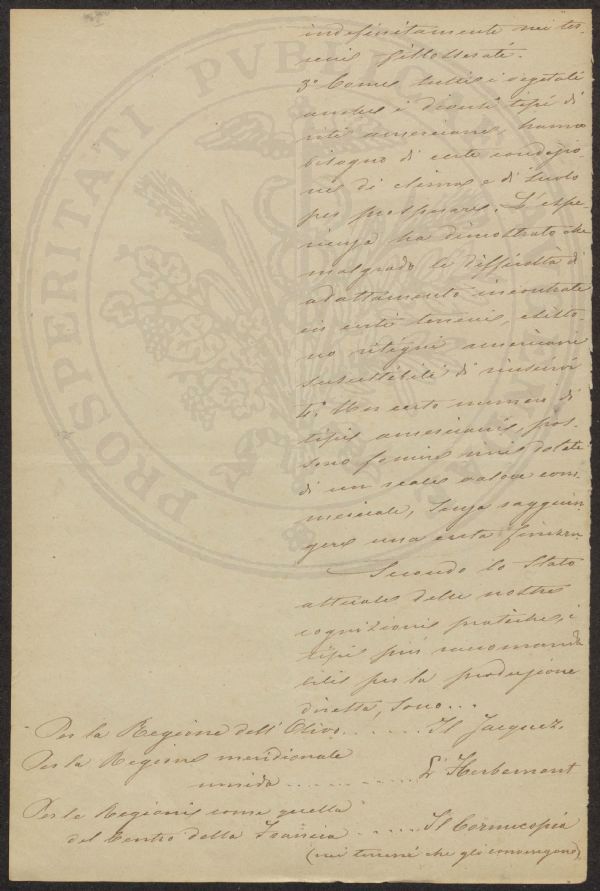 indefinitamente nei ter-
reni fillosserati.
3° Come tutti i vegetali
anche i diversi tipi di
viti americane, hanno
bisogno di certe condizio-
ni di clima e di suolo
per prosperare. L'espe-
rienza ha dimostrato che
malgrado le difficoltà di
adattamento incontrate
in certi terreni,
vitigni americani
suscettibili di riuscirvi
4° Un certo numero di
tipi americani, pos-
sono fornire vini dotati
di un reale valore com-
merciale, senza raggiun-
gere una certa finezza
Secondo lo stato
attuale delle nostre
cognizioni pratiche, i
tipi più raccomanda
bili per la produzione
diretta, sono...
Per la Regione dell'Olivo...... Il Jacquez.
Per la Regione meridionale
umida .......... L'Herbemont
Per le Regioni come quella
del Centro della Francia ..... Il Cornucopia
(nei terreni che gli convengono)
PROSPERITATI PUBLICAE